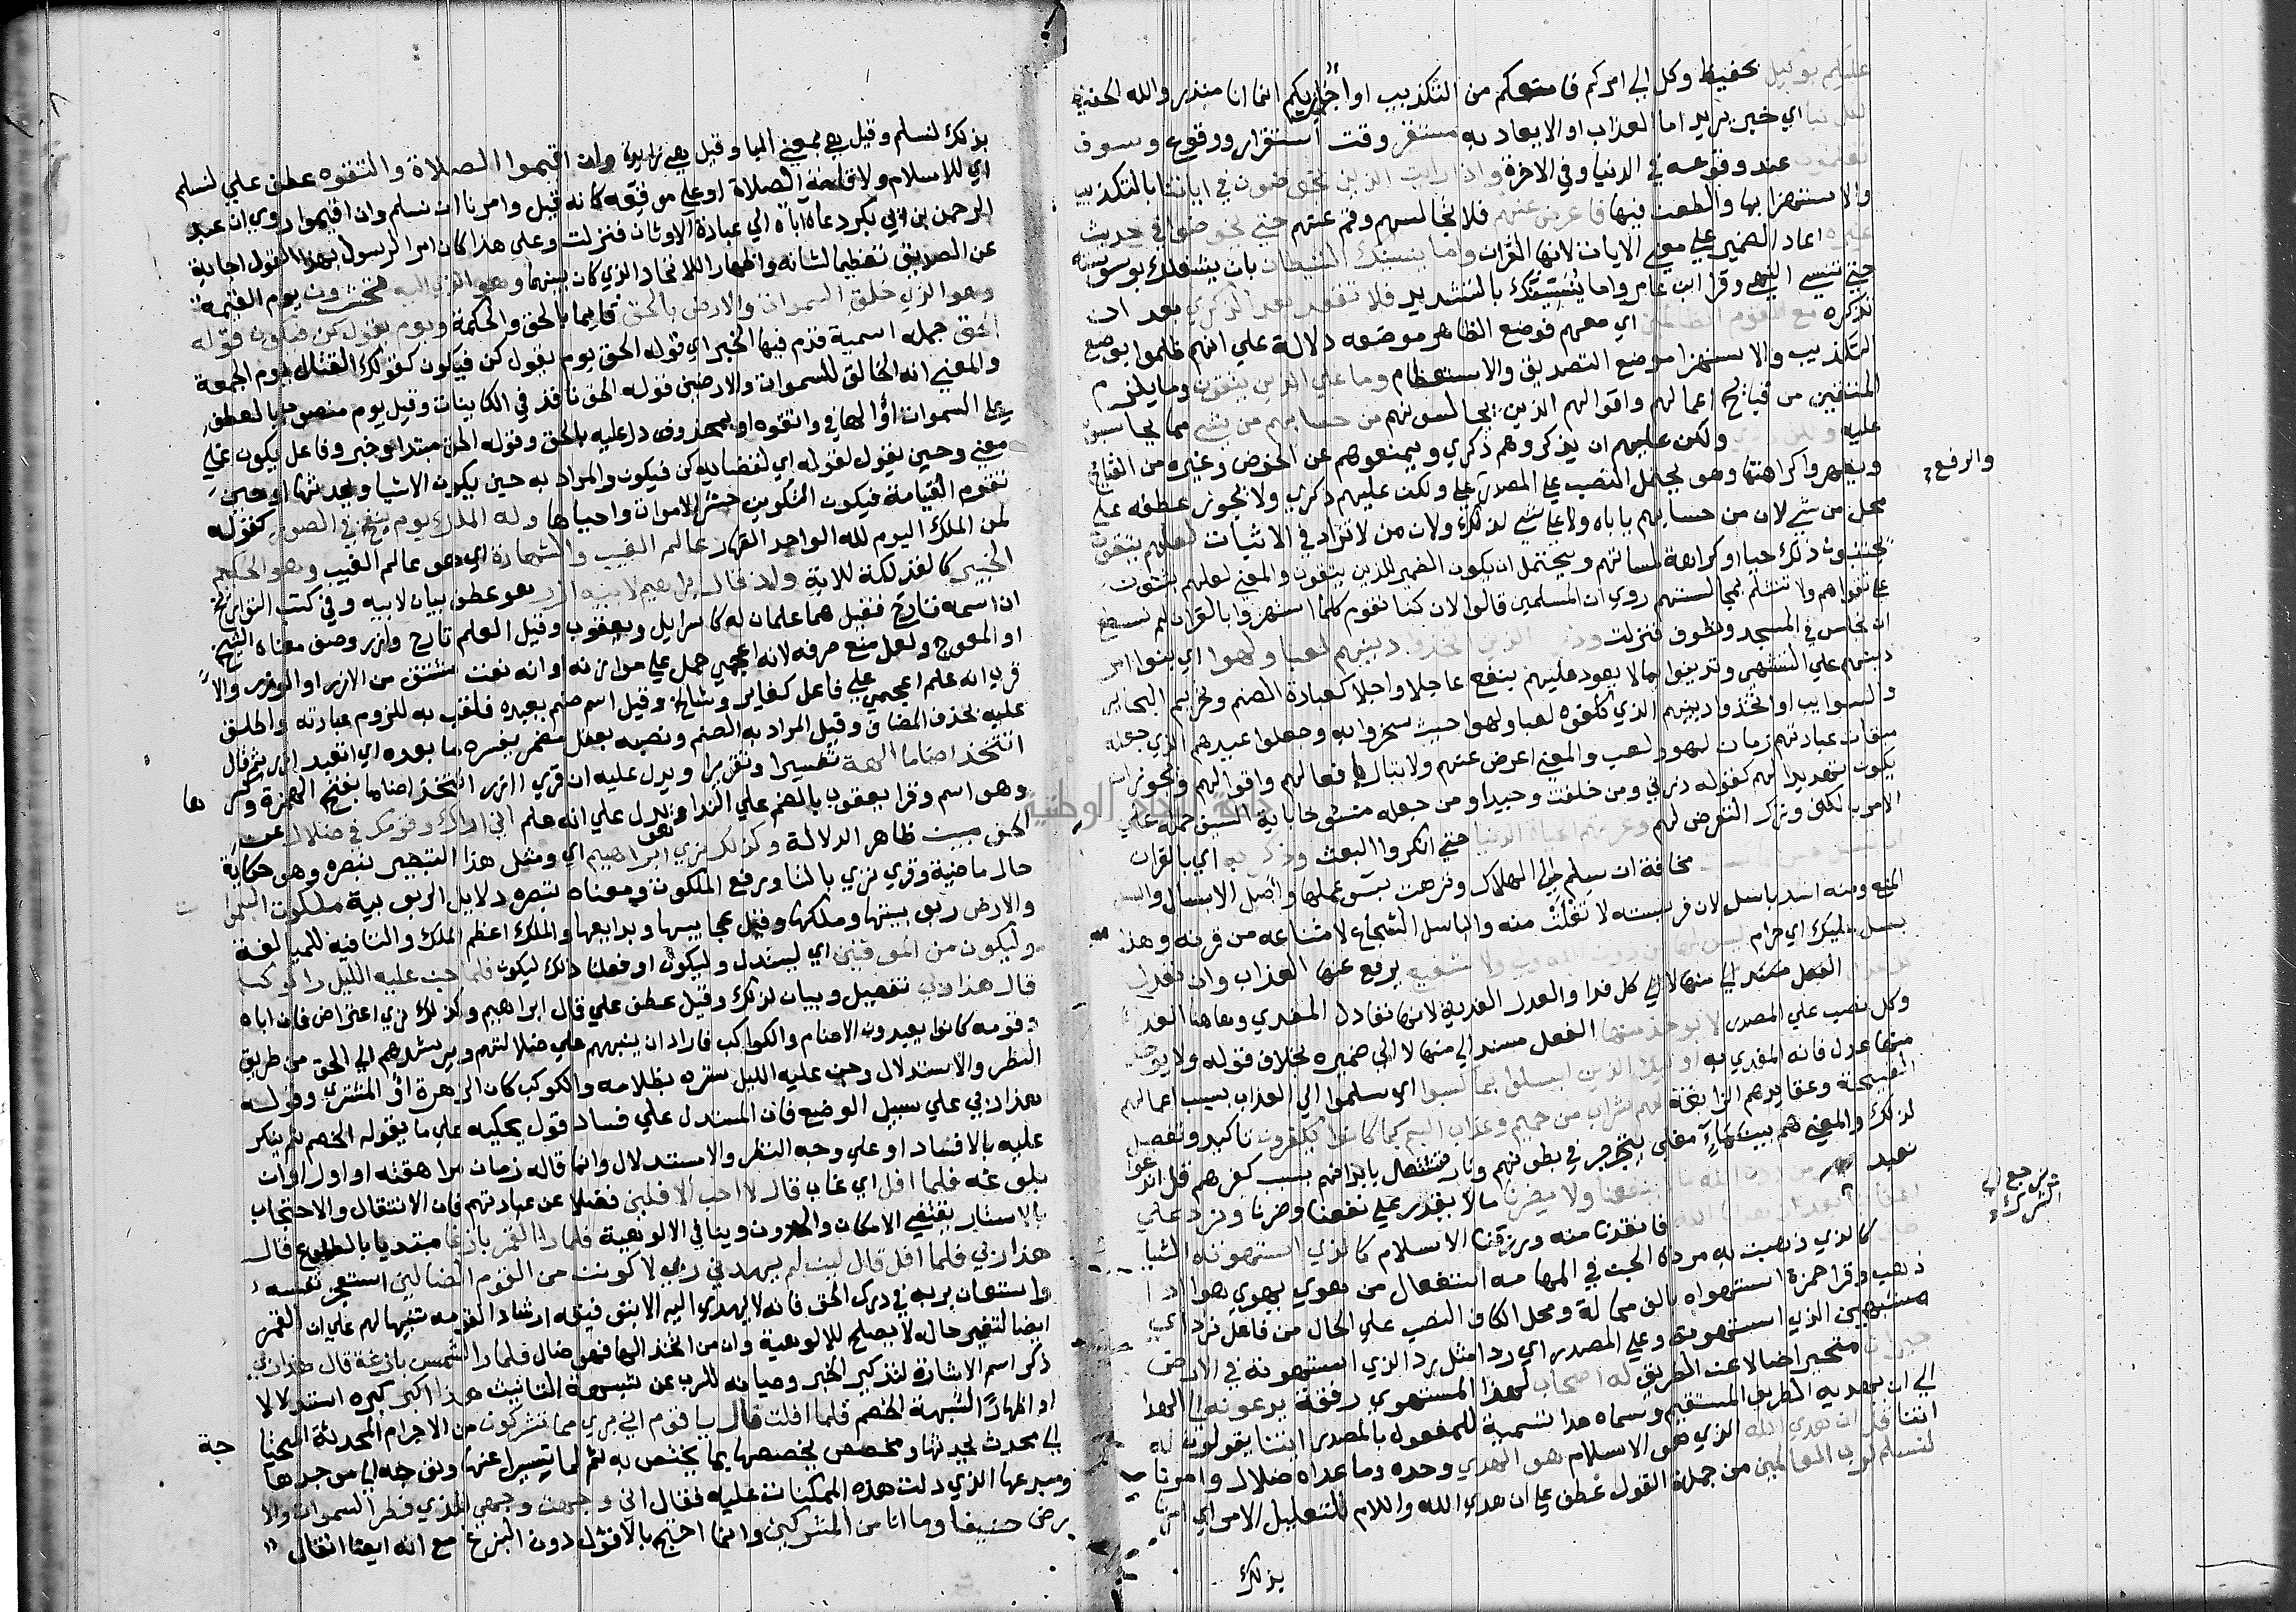 عليكم بوكيل بحفيظ وكل الي امركم فامنعكم من التكذيب او اجازيكم انما انا منذر والله الحفيظ
لكل نبا اي خبر يريد اما العذاب او الايعاد به مستقر وقت استقرار ووقوع وسوف
تعلمون عند وقوعه في الدنيا وفي الاخرة واذا رايت الذين يخوضون في اياتنا بالتكذيب
والاستهزا بها والطعن فيها فاعرض عنهم فلا تجالسهم وقم عنهم حتي يخوضوا في حديث
غيره اعاد الضمير علي معني الايات لانها القران واما ينسينك الشيطان بان يشغلك بوسوسته
حتي تنسي النهي وقرا ابن عامر واما ينسينك بالتشديد فلا تقعد بعد الذكري بعد ان
تذكره مع القوم الظالمين اي معهم فوضع الظاهر موضعه دلالة علي انهم ظلموا بوضع
التكذيب والاستهزا موضع التصديق والاستعظام وما علي الذين يتقون وما يلزم
المتقين من قبائح اعمالهم واقوالهم الذين يجالسونهم من حسابهم من شي مما يحاسبون
عليه ولكن ذكري ولكن عليهم ان يذكروهم ذكري ويمنعوهم عن الخوض وغيره من القبائح
ويظهروا كراهتها وهو يحتمل النصب علي المصدر علي ولكن عليهم ذكري ولا يجوز عطفه علي
والرفع
محل من شي لان من حسابهم ياباه ولا علي شي لذلك ولان من لا تزاد في الاثبات لعلهم يتقون
يجتنبون ذلك حيا او كراهة لمساتهم ويحتمل ان يكون الضمير للذين يتقون والمعني لعلهم يثبتون
علي تقواهم ولا تنثلم بمجالستهم روي ان المسلمين قالوا لان كنا نقوم كلما استهزوا بالقران لم نستطع
ان نجلس في المسجد ونطوف فنزلت وذر الذين اتخذوا دينهم لعبا ولهوا اي بنوا امر
دينهم علي التشهي وتدينوا بما لا يعود عليهم بنفع عاجلا واجلا كعبادة الصنم وتحريم البحاير
والسوايب او اتخذوا دينهم الذي كلفوه لعبا ولهوا حيث سخروا به وجعلوا عيدهم الذي جعله
ميقات عبادتهم زمان لهو ولعب والمعني اعرض عنهم ولا تبال بافعالهم واقوالهم ويجوز ان
يكون تهديدا لهم كقوله ذرني ومن خلقت وحيدا ومن جعله منسوخا باية السيف حمله علي
الامر بالكف وترك التعرض لهم وغرتهم الحياة الدنيا حتي انكروا البعث وذكر به اي بالقران
ان تبسل نفس بما كسبت مخافة ان تسلم الي الهلاك وترهن بسو عملها واصل الابسال والبسل
المنع ومنه اسد باسل لان فريسته لا تفلت منه والباسل الشجاع لامتناعه من قرنه وهذا
بسل عليك اي حرام ليس لها من دون الله ولي ولا شفيع يدفع عنها العذاب وان تعدل
كل عدل وان تفد كل فدا والعدل الفدية لانها تعادل المفدي وهاهنا الفدا
وكل نصب علي المصدر لا يوخذ منها الفعل مسند الي منها لا الي ضميره بخلاف قوله ولا يوخذ
منها عدل فانه المفدي به اوليك الذين ابسلوا بما كسبوا اي سلموا الي العذاب بسبب اعمالهم
القبيحة وعقايدهم الزايغة لهم شراب من حميم وعذاب اليم بما كانوا يكفرون تاكيد وتفصيل
لذلك والمعني هم بين ماء مغلي يتجرجر في بطونهم ونار تشتعل بابدانهم بسبب كفرهم قل اندعوا
نعبد من دون الله ما لا ينفعنا ولا يضرنا ما لا يقدر علي نفعنا وضرنا ونرد علي
نرجع الي الشرك
اعقابنا بعد اذ هدانا الله فانقذنا منه ورزقنا الاسلام كالذي استهوته الشيا
طين كالذي ذهبت به مردة الجن في المهامه استفعال من هوي يهوي هويا اذا
ذهب وقرا حمزة استهواه بالف ممالة ومحل الكاف النصب علي الحال من فاعل نرد اي
مشبهين الذي استهوته وعلي المصدر اي ردا مثل رد الذي استهوته في الارض
حيران متحيرا ضالا عن الطريق له اصحاب لهذا المستهوي رفقة يدعونه الي الهدا
الي ان يهديه الطريق المستقيم وسماه هدا تسمية للمفعول بالمصدر ايتنا يقولون له
ايتنا قل ان هدي الله الذي هو الاسلام هو الهدي وحده وما عداه ضلال وامرنا
لنسلم لرب العالمين من جملة القول عطف علي ان هدي الله واللام لتعليل الامر اي امرنا
بذلك
بذلك لنسلم وقيل هي بمعني البا وقيل هي زايدة وان اقيموا الصلاة واتقوه عطف علي لنسلم
اي للاسلام ولاقامة الصلاة او علي موقعه كانه قيل وامرنا ان نسلم وان اقيموا روي ان عبد
الرحمن بن ابي بكر دعا اباه الي عبادة الاوثان فنزلت وعلي هذا كان امر الرسول بهذا القول اجابة
عن الصديق تعظيما لشانه واظهارا للاتحاد الذي كان بينهما وهو الذي اليه تحشرون يوم القيمة
وهو الذي خلق السموات والارض بالحق قايما بالحق والحكمة ويوم يقول كن فيكون قوله
الحق جملة اسمية قدم فيها الخبر اي قوله الحق يوم يقول كن فيكون كقولك القتال يوم الجمعة
والمعني انه الخالق للسموات والارضين قوله الحق نافذ في الكاينات وقيل يوم منصوب بالعطف
علي السموات او الها في واتقوه او بمحذوف دل عليه بالحق وقوله الحق مبتدا وخبر وفاعل يكون علي
معني وحين يقول لقوله اي لقضايه كن فيكون والمراد به حين يكون الاشيا ويحدثها او حين
تقوم القيامة فيكون التكوين حشر الاموات واحياها وله الملك يوم ينفخ في الصور كقوله
لمن الملك اليوم لله الواحد القهار عالم الغيب والشهادة اي هو عالم الغيب وهو الحكيم
الخبير كالفذلكة للاية واذ قال ابراهيم لابيه ازر هو عطف بيان لابيه وفي كتب التواريخ
ان اسمه تارخ فقيل هما علمان له كاسرايل ويعقوب وقيل العلم تارخ وازر وصف معناه الشيخ
او المعوج ولعل منع صرفه لانه اعجمي حمل علي موازنه او انه نعت مشتق من الازر او الوزر والا
قرب انه علم اعجمي علي فاعل كغابر وشالخ وقيل اسم صنم يعبده فلقب به للزوم عبادته واطلق
عليه بحذف المضاف وقيل المراد به الصنم ونصبه بفعل مضمر يفسره ما بعده اي اتعبد ازر ثم قال
اتتخذ اصناما الهة تفسيرا وتقريرا ويدل عليه ان قري اازر اتتخذ اصناما بفتح الهمزة وكسرها
وهو اسم وقرا يعقوب بالضم علي الندا وهو يدل علي انه علم اني اراك وقومك في ضلال عن
الحق مبين ظاهر الدلالة وكذلك نري ابراهيم اي ومثل هذا التبصير نبصره وهو حكاية
حال ماضية وقري تري بالتا ورفع الملكوت ومعناه تبصره دلايل الربوبية ملكوت السموات
والارض ربوبيتها وملكها وقيل عجايبها وبدايعها والملك اعظم الملك والتا فيه للمبالغة
وليكون من الموقنين اي ليستدل وليكون او فعلنا ذلك ليكون فلما جن عليه الليل را كوكبا
قال هذا ربي تفصيل وبيان لذلك وقيل عطف علي قال ابراهيم وكذلك نري اعتراض فان اباه
وقومه كانوا يعبدون الاصنام والكواكب فاراد ان ينبههم علي ضلالتهم ويرشدهم الي الحق من طريق
النظر والاستدلال وجن عليه الليل ستره بظلامه والكوكب كان الزهرة او المشتري وقوله
هذا ربي علي سبيل الوضع فان المستدل علي فساد قول يحكيه علي ما يقوله الخصم ثم يكر
عليه بالافساد او علي وجه النظر والاستدلال وانما قاله زمان مراهقته او اول اوان
بلوغه فلما افل اي غاب قال لا احب الافلين فضلا عن عبادتهم فان الانتقال والاحتجاب
بالاستتار يقتضي الامكان والحدوث وينافي الالوهية فلما را القمر بازغا مبتديا بالطلوع قال
هذا ربي فلما افل قال لين لم يهدني ربي لاكونن من القوم الضالين استعجز نفسه
واستعان بربه في درك الحق فانه لا يهتدي اليه الا بتوفيقه ارشادا لقومه وتنبيها لهم علي ان القمر
ايضا لتغير حاله لا يصلح للالوهية وان من اتخذ الها فهو ضال فلما را الشمس بازغة قال هذا ربي
ذكر اسم الاشارة لتذكير الخبر وصيانه للرب عن شبهة التانيث هذا اكبر كبره استدلالا
او اظهارا لشبهة الخصم فلما افلت قال يا قوم اني بري مما تشركون من الاجرام المحدثة المحتاجة
الي محدث يحدثها ومخصص يخصصها بما يختص به ثم لما تبرا عنها توجه الي موجدها
ومبدعها الذي دلت هذه الممكنات عليه فقال اني وجهت وجهي للذي فطر السموات والا
رض حنيفا وما انا من المشركين وانما احتج بالافول دون البزوغ مع انه ايضا انتقال